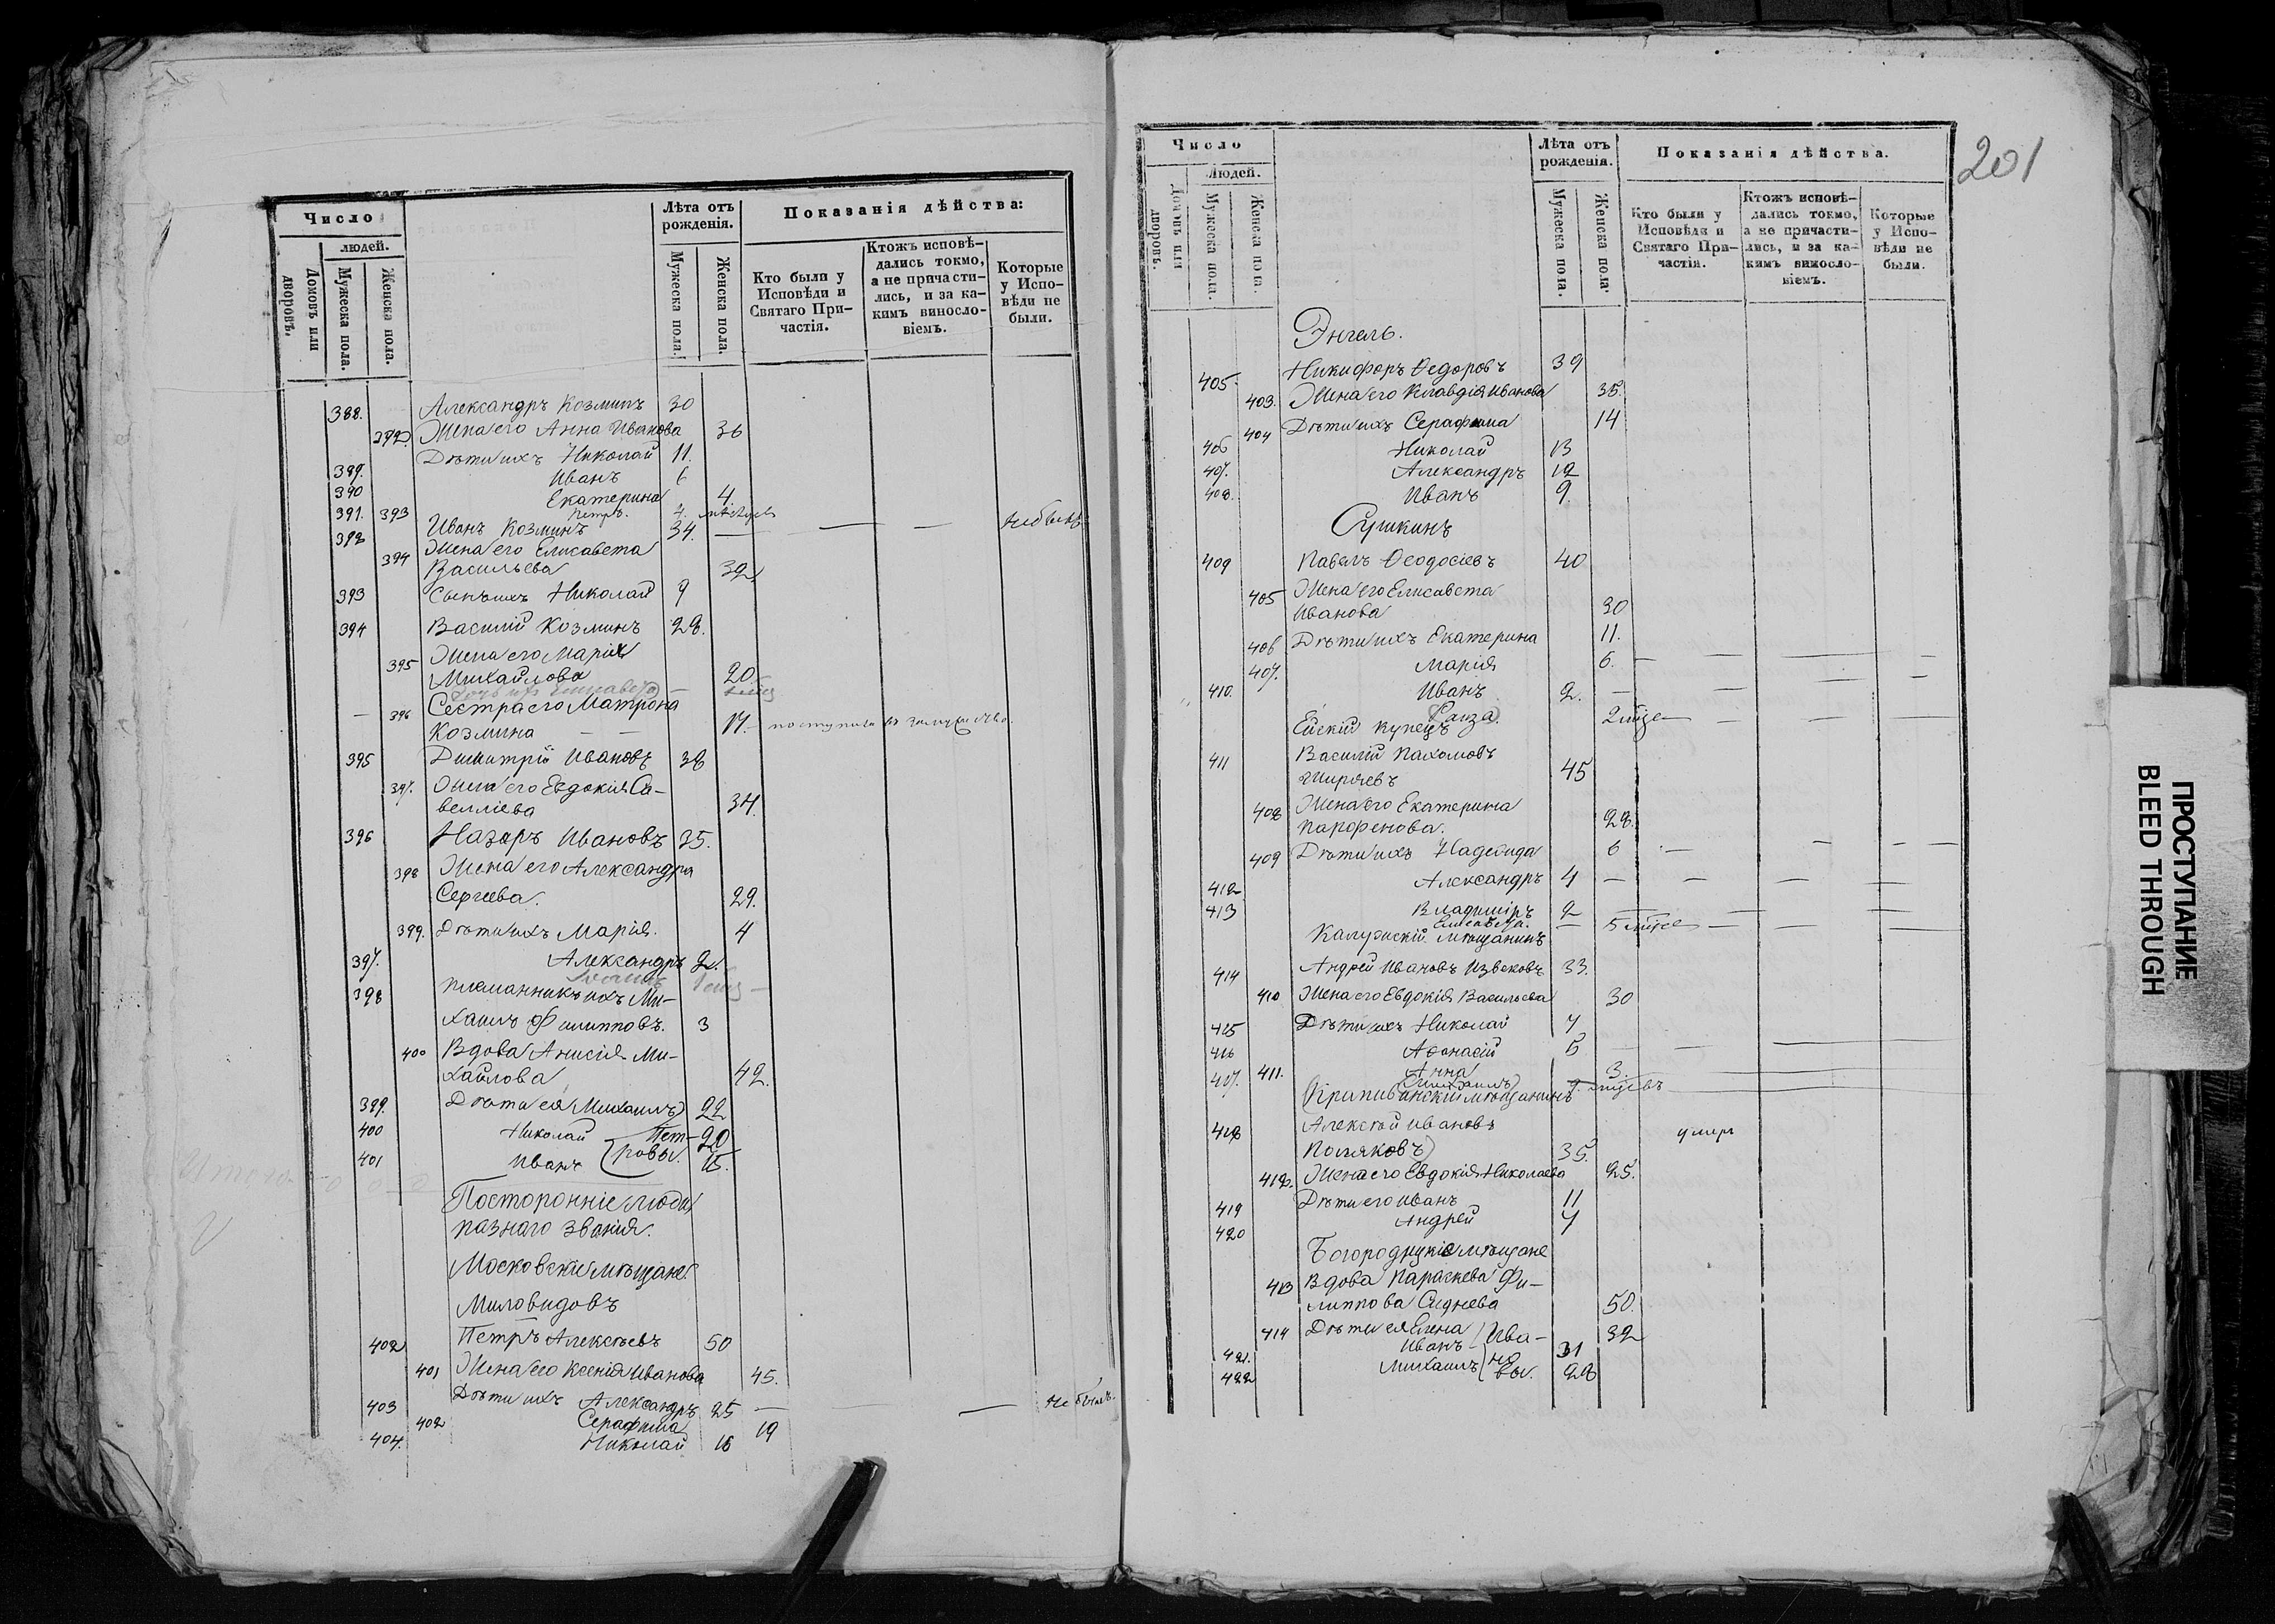 Число
людей.
Домовъ или дворовъ.
Мужеска пола.
Женска пола.
Лѣта отъ рожденія.
Мужеска пола.
Женска пола.
Показанія дѣйства:
Кто были у Исповѣди и Святаго Причастія.
Ктожъ исповѣдались токмо, а не причастились, и за какимъ винословіемъ.
Которые у Исповѣди не были.
388. Александръ Козминъ 30
392. Жена его Анна Иванова 36
Дѣти ихъ Николай 11.
389. Иванъ 6
390 Екатерина 4.
391. 393 Петръ. 4. мѣсяцев
392 Иванъ Козминъ 34. — — — не былъ
394 Жена его Елисавета
Васильева 32
393 Сынъ ихъ Николай 9
394 Василій Козминъ 28.
395 Жена его Марія
Михайлова 20.
Дочь ихъ Елисавета —
— 396 Сестра его Матрона
Козмина — — 17. — поступила в замужство.
395 Димитрій Ивановъ 38
397. Жена его Евдокія Са-
велліева 34.
396 Назаръ Ивановъ 35.
398 Жена его Александра
Сергеева. 29.
399. Дѣти ихъ Марія. 4
397. Александръ 2.
398 племянникъ ихъ Ми-
хаилъ Филипповъ. 3
400 Вдова Анисія Ми-
хайлова 42.
399. Дѣти ея Михаилъ 22
400 Николай Пет- 20
401 Иванъ ровы. 15.
Посторонніе люди
разнаго званія.
Московскіе мѣщане.
Миловидовъ
402 Петръ Алексѣевъ 50
401 Жена его Ксенія Иванова 45.
403 Дѣти ихъ Александръ 25 — — — не былъ.
402 Серафима 19
404. Николай 16
201
Число
Людей.
Домовъ или дворовъ.
Мужеска пола.
Женска пола.
Лѣта отъ рожденія.
Мужеска пола.
Женска пола.
Показанія дѣйства.
Кто были у Исповѣди и Святаго Причастія.
Ктожъ исповѣдались токмо, а не причастились, и за какимъ винословіемъ.
Которые у Исповѣди не были.
Энгель.
405. Никифоръ Ѳедоровъ 39
403. Жена его Клавдія Иванова 35.
404 Дѣти ихъ Серафима 14
406 Николай 13
407. Александръ 12
408. Иванъ 9.
Сушкинъ
409 Павелъ Ѳеодосіевъ 40
405 Жена его Елисавета
Иванова 30
406 Дѣти ихъ Екатерина 11.
407. Марія 6. — — — —
410. Иванъ 2. — — — —
Раиза 2 мѣсе — — — —
Ейскій купецъ
411 Василій Пахомовъ
Ширяевъ 45
408 Жена его Екатерина
Парѳенова. 28.
409 Дѣти ихъ Надежда 6 — — — —
412 Александръ 4 — — — —
413 Владиміръ 2 — — — —
Елисавета. — 5 мѣсе — — —
Калужскій мѣщанинъ
414 Андрей Ивановъ Извековъ 33.
410 Жена его Евдокія Васильева 30
415 Дѣти ихъ Николай 7
416 Аѳанасій 5 — — —
417. 411. Анна 3. —
Михаилъ 9. мѣсевъ
Крапивенскій мѣщанинъ
418 Алексѣй Ивановъ умеръ
Поляковъ 35.
412. Жена его Евдокія Николаева 25.
419 Дѣти его Иванъ 11
420 Андрей 7
Богородицкіе мѣщане
413 Вдова Параскева Фи-
липпова Сиднева 50.
414 Дѣти ея Елена Ива- 32
421. Иванъ но 31
422 Михаилъ вы. 28
ПРОСТУПАНИЕ
BLEED THROUGH